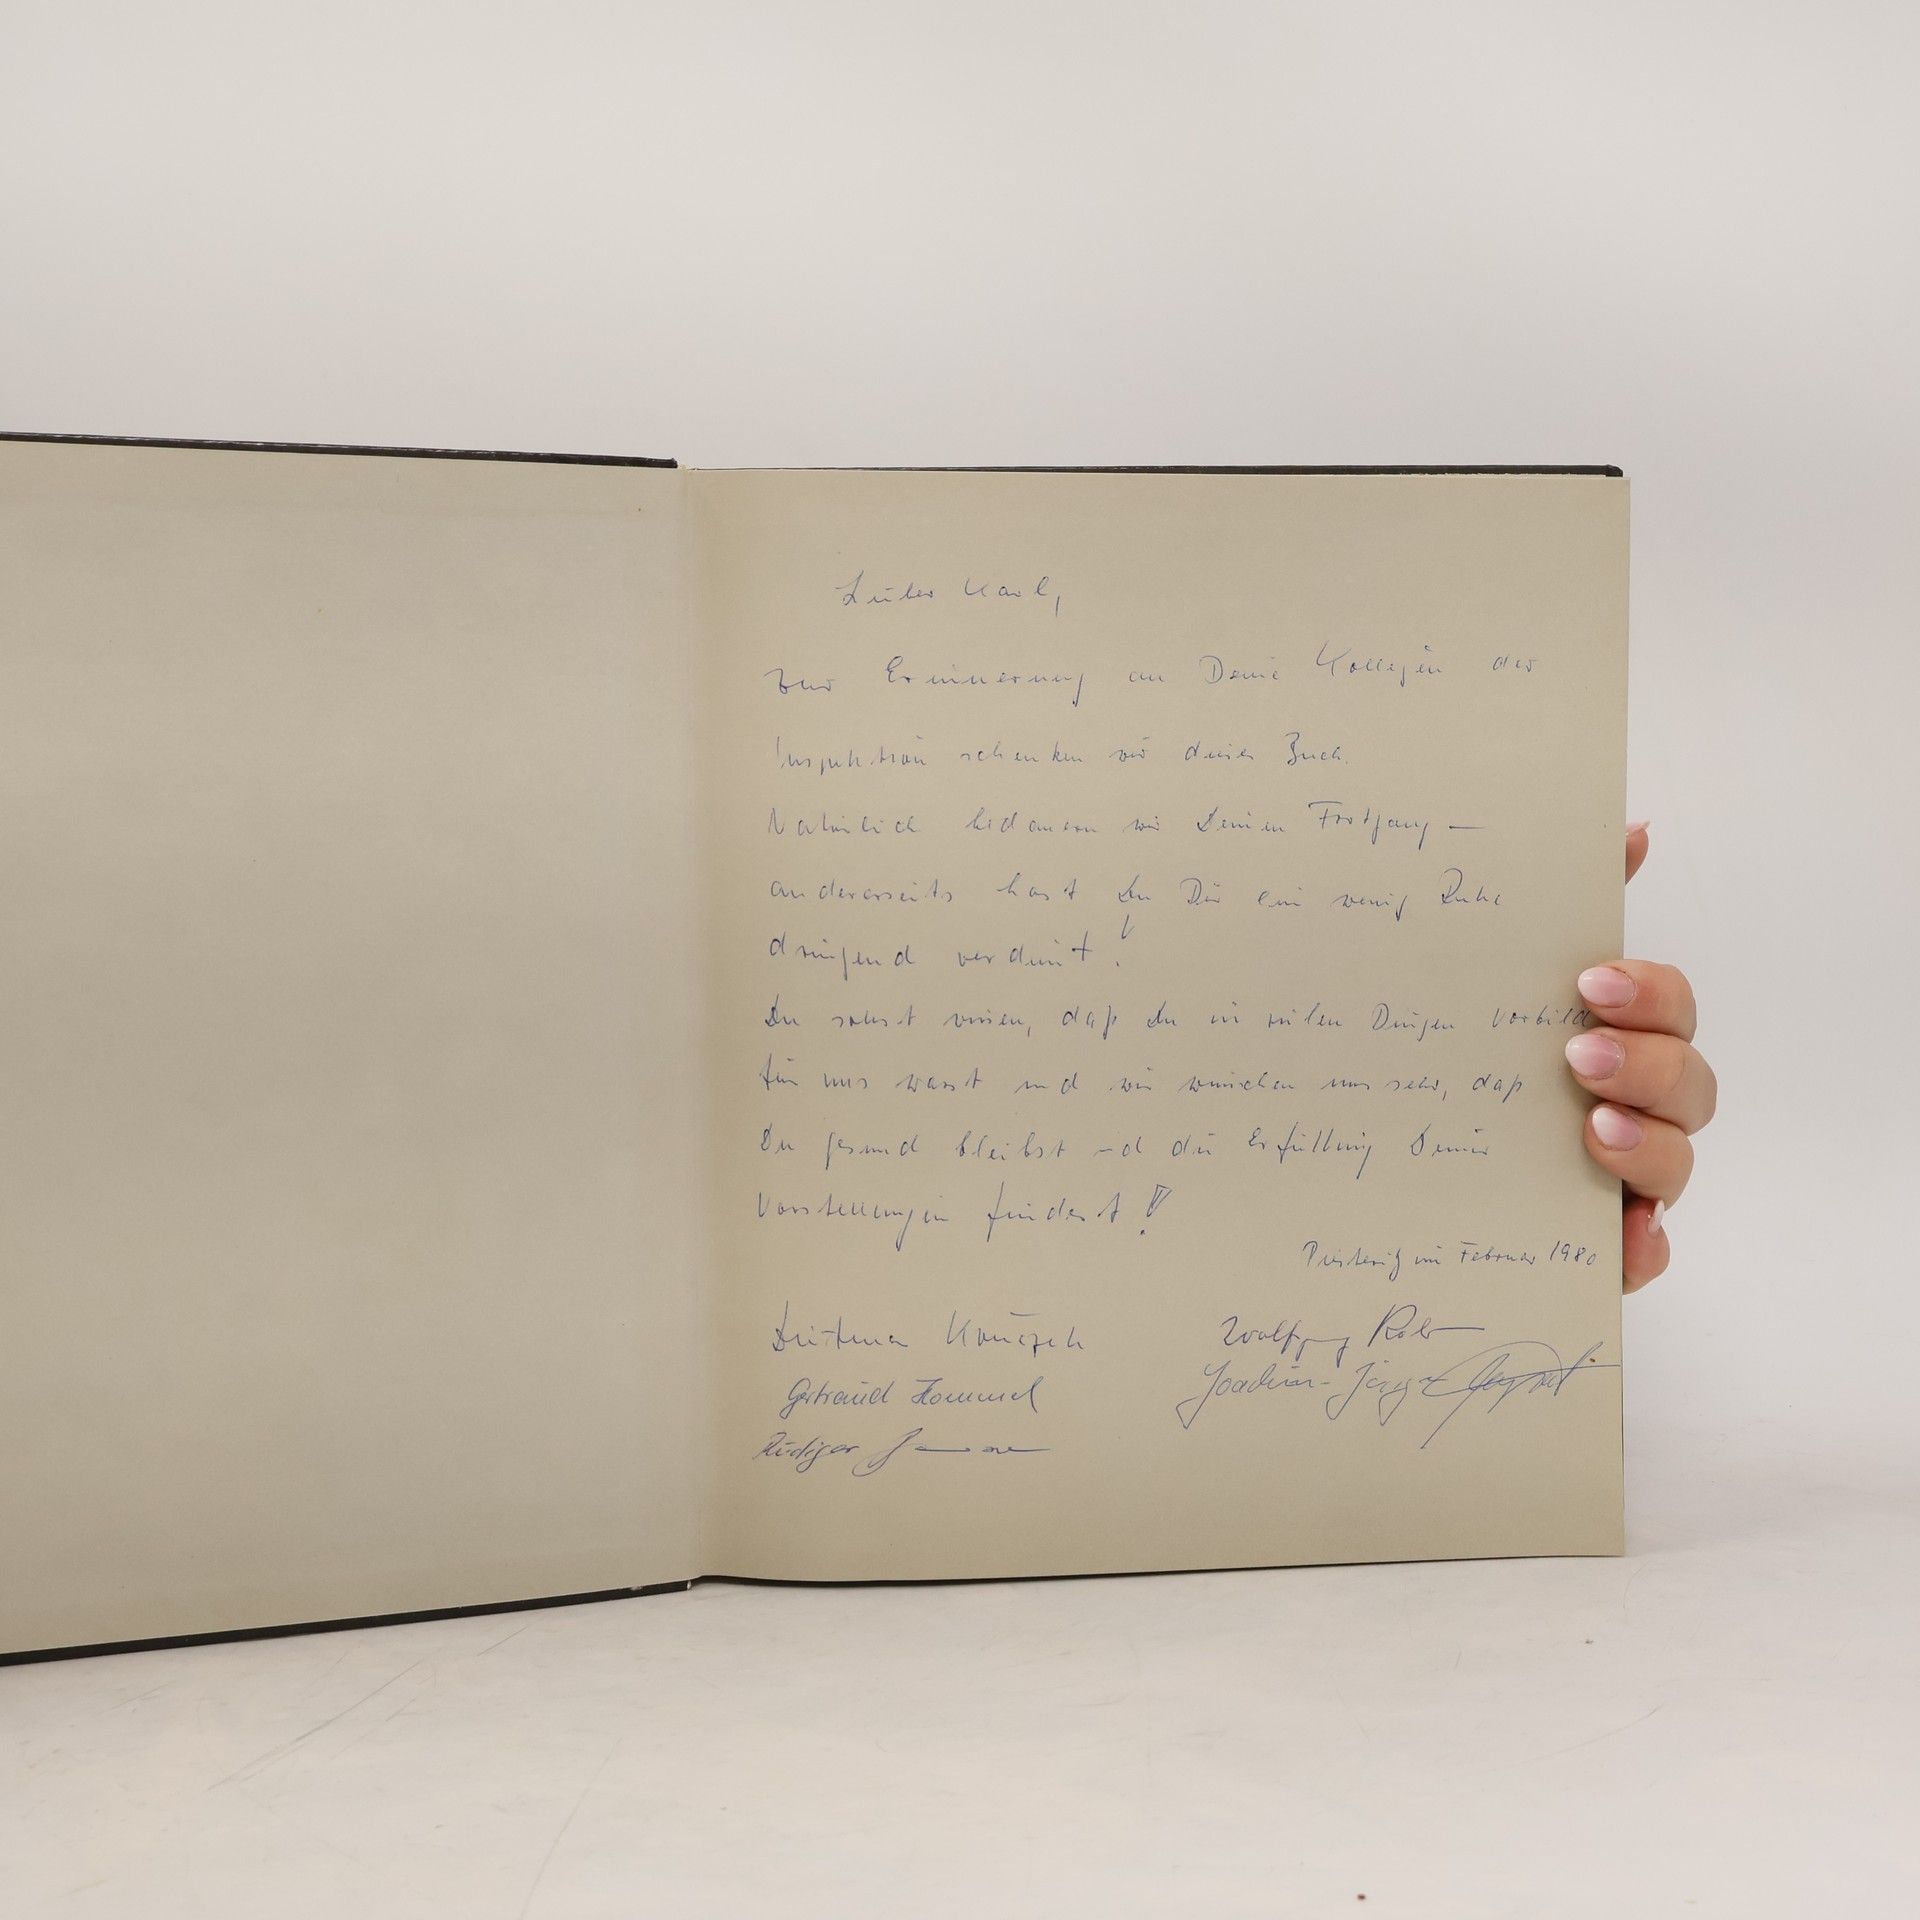 Lieber Karl,
zur Erinnerung an Deine Kollegen der
Inspektion schenken wir dieses Buch.
Natürlich bedauern wir Deinen Fortgang —
andererseits hast Du Dir ein wenig Ruhe
dringend verdient!
Du sollst wissen, daß Du in vielen Dingen Vorbild
für uns warst und wir wünschen uns sehr, daß
Du gesund bleibst und die Erfüllung Deiner
Vorstellungen findest!
Piesteritz im Februar 1980
Dietmar
Wolfgang
Gertraud Hommel
Joachim-Jörg
Rüdiger